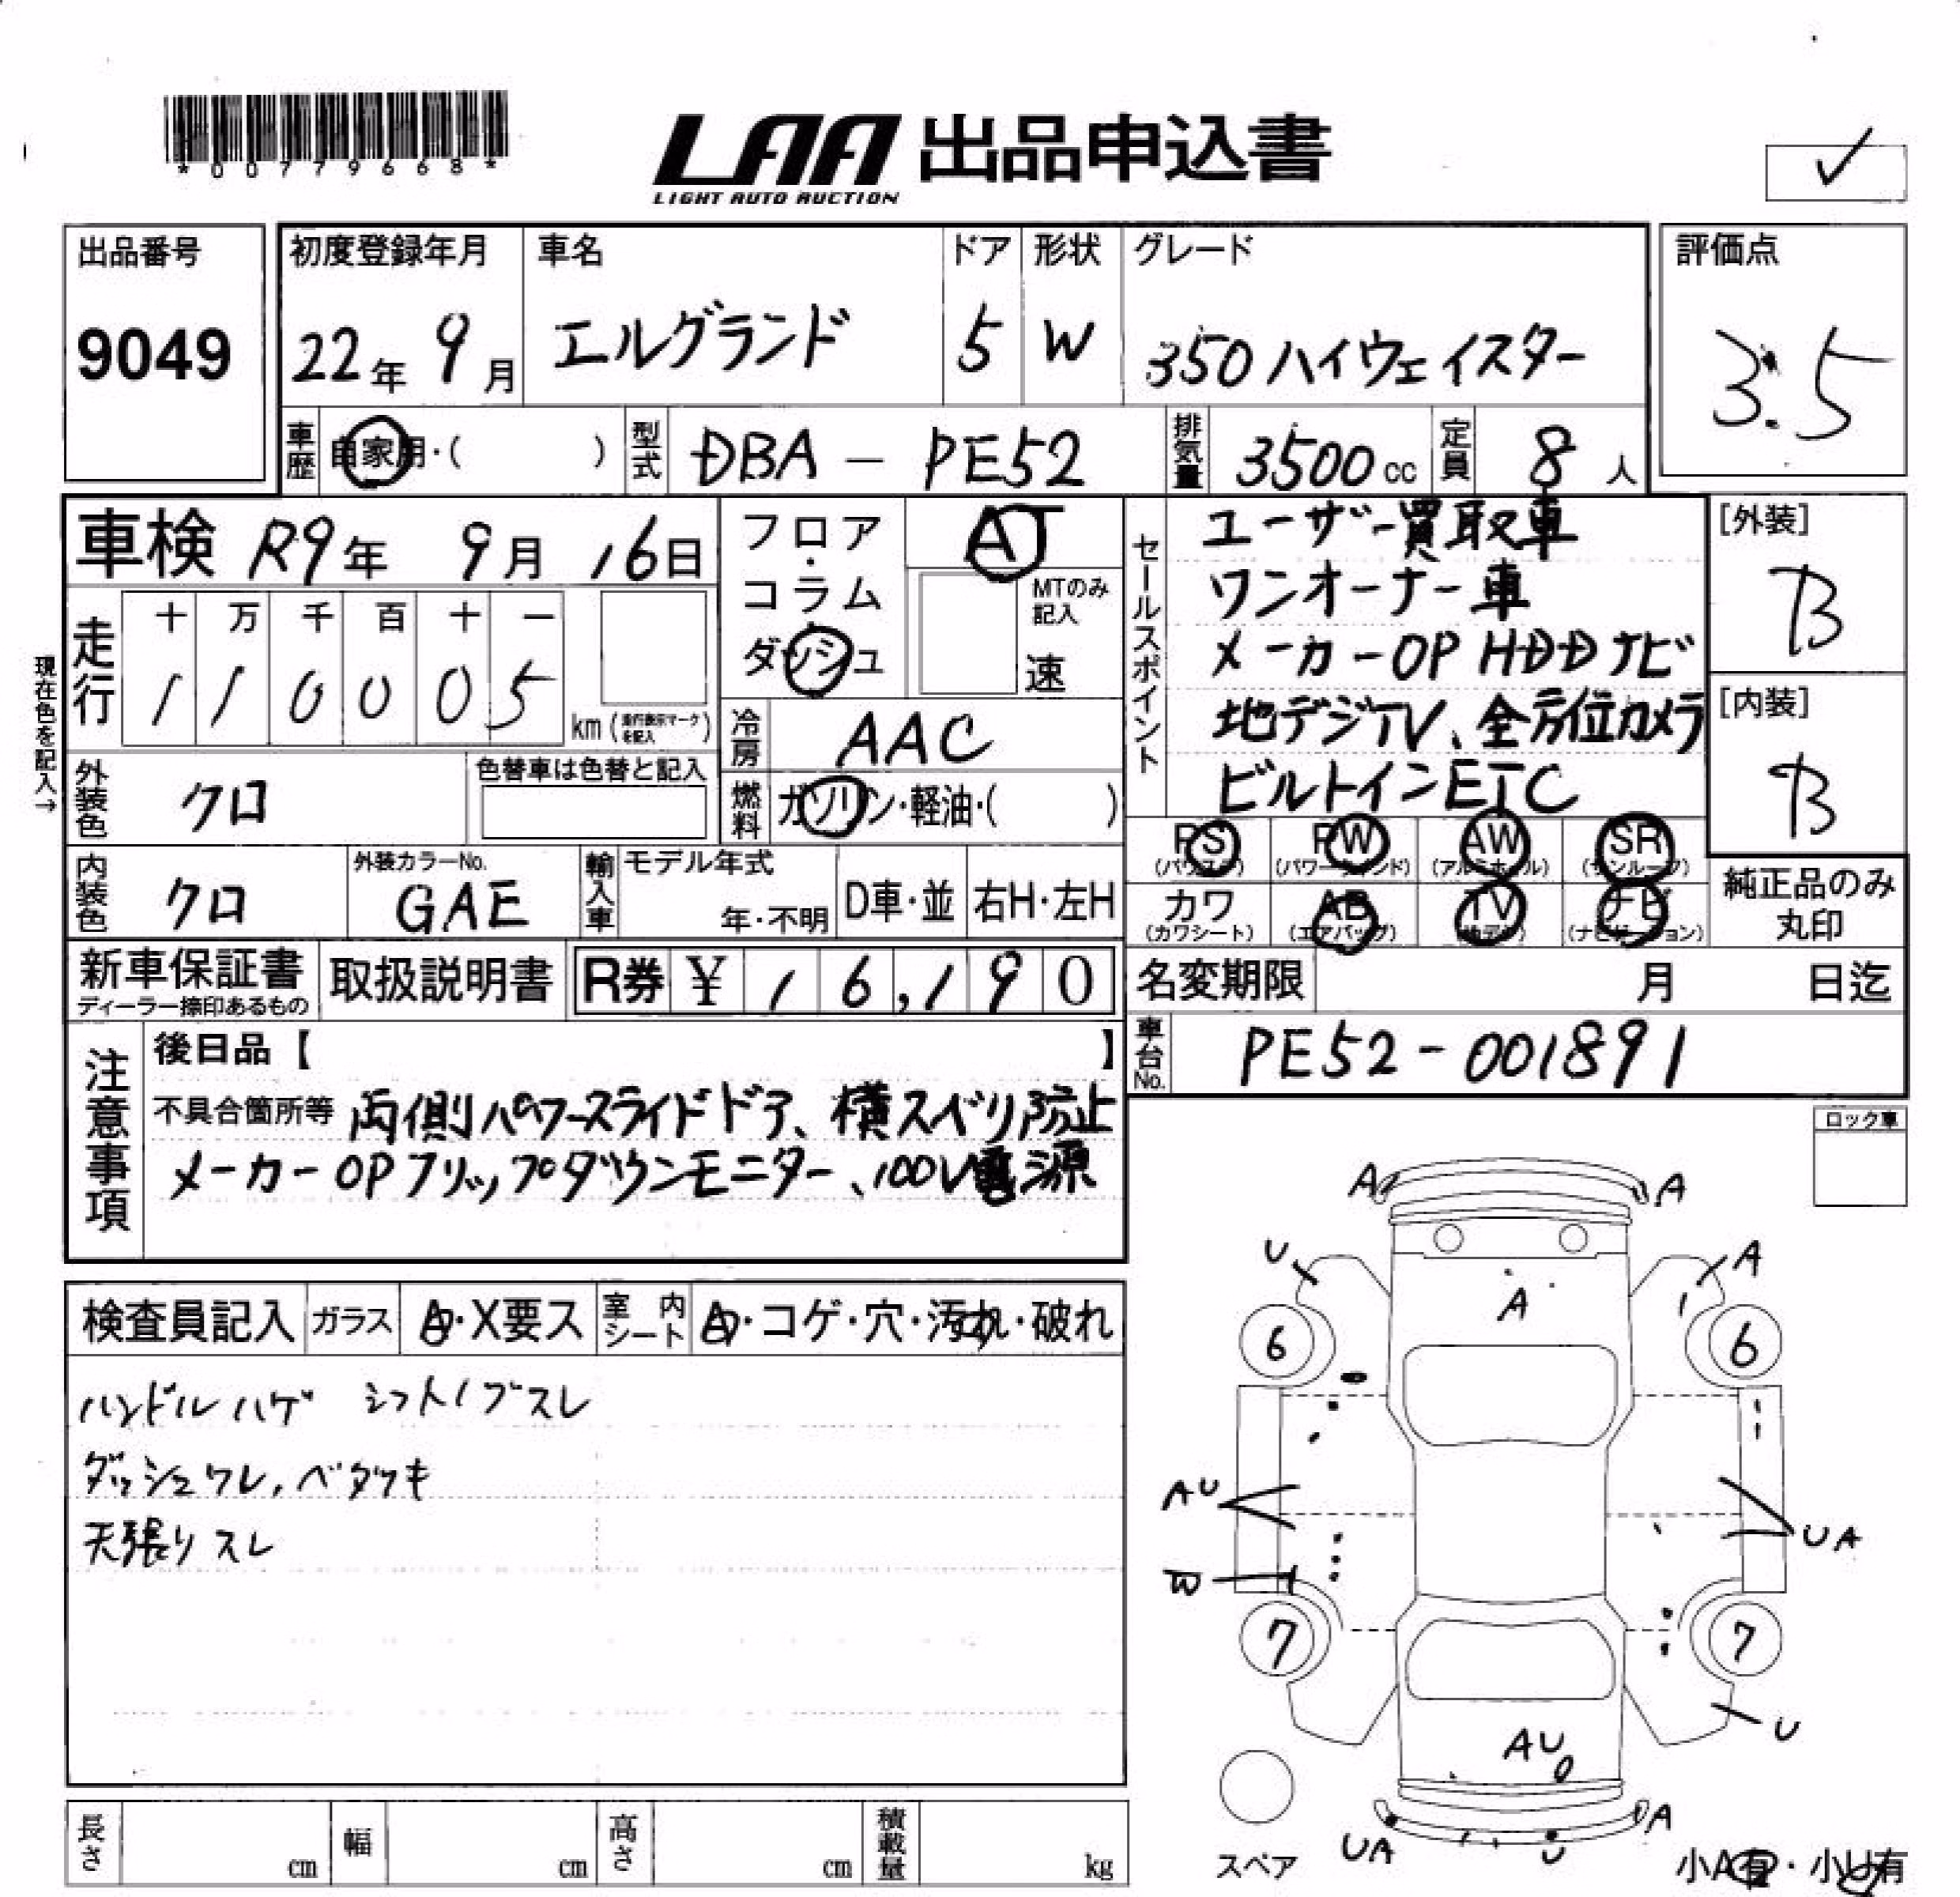 *00779668*
LAA 出品申込書
LIGHT AUTO AUCTION
✓
出品番号
9049
初度登録年月
22年 9月
車名
エルグランド
ドア
5
形状
W
グレード
350ハイウェイスター
評価点
3.5
車歴
自家用・( )
型式
DBA - PE52
排気量
3500cc
定員
8人
車検 R9年 9月 16日
現在色を記入→
走行
十 万 千 百 十 一
1 1 0 0 0 5
km (走行表示マークを記入)
フロア
・
コラム
・
ダッシュ
AT
MTのみ記入
速
冷房
AAC
燃料
ガソリン・軽油・( )
外装色
クロ
色替車は色替と記入
内装色
クロ
外装カラーNo.
GAE
輸入車
モデル年式
年・不明
D車・並
右H・左H
セールスポイント
ユーザー買取車
ワンオーナー車
メーカーOP HDDナビ
地デジTV、全方位カメラ
ビルトインETC
[外装]
B
[内装]
B
PS (パワステ)
PW (パワーウインド)
AW (アルミホイル)
SR (サンルーフ)
カワ (カワシート)
AB (エアバッグ)
TV (地デジ)
ナビ (ナビゲーション)
純正品のみ
丸印
新車保証書
ディーラー捺印あるもの
取扱説明書
R券 ¥ 16,190
名変期限 月 日迄
車台No.
PE52-001891
注意事項
後日品【 】
不具合箇所等 両側パワースライドドア、横スベリ防止
メーカーOPフリップダウンモニター、100V電源
ロック車
検査員記入
ガラス
A・X要ス
室内シート
A・コゲ・穴・汚れ・破れ
ハンドルハゲ シフトノブスレ
ダッシュワレ、ベタツキ
天張りスレ
A A
U A
A
6 6
AU
UA
W
7 7
U
AU
UA U A
スペア
小A有・小U有
長さ cm
幅 cm
高さ cm
積載量 kg